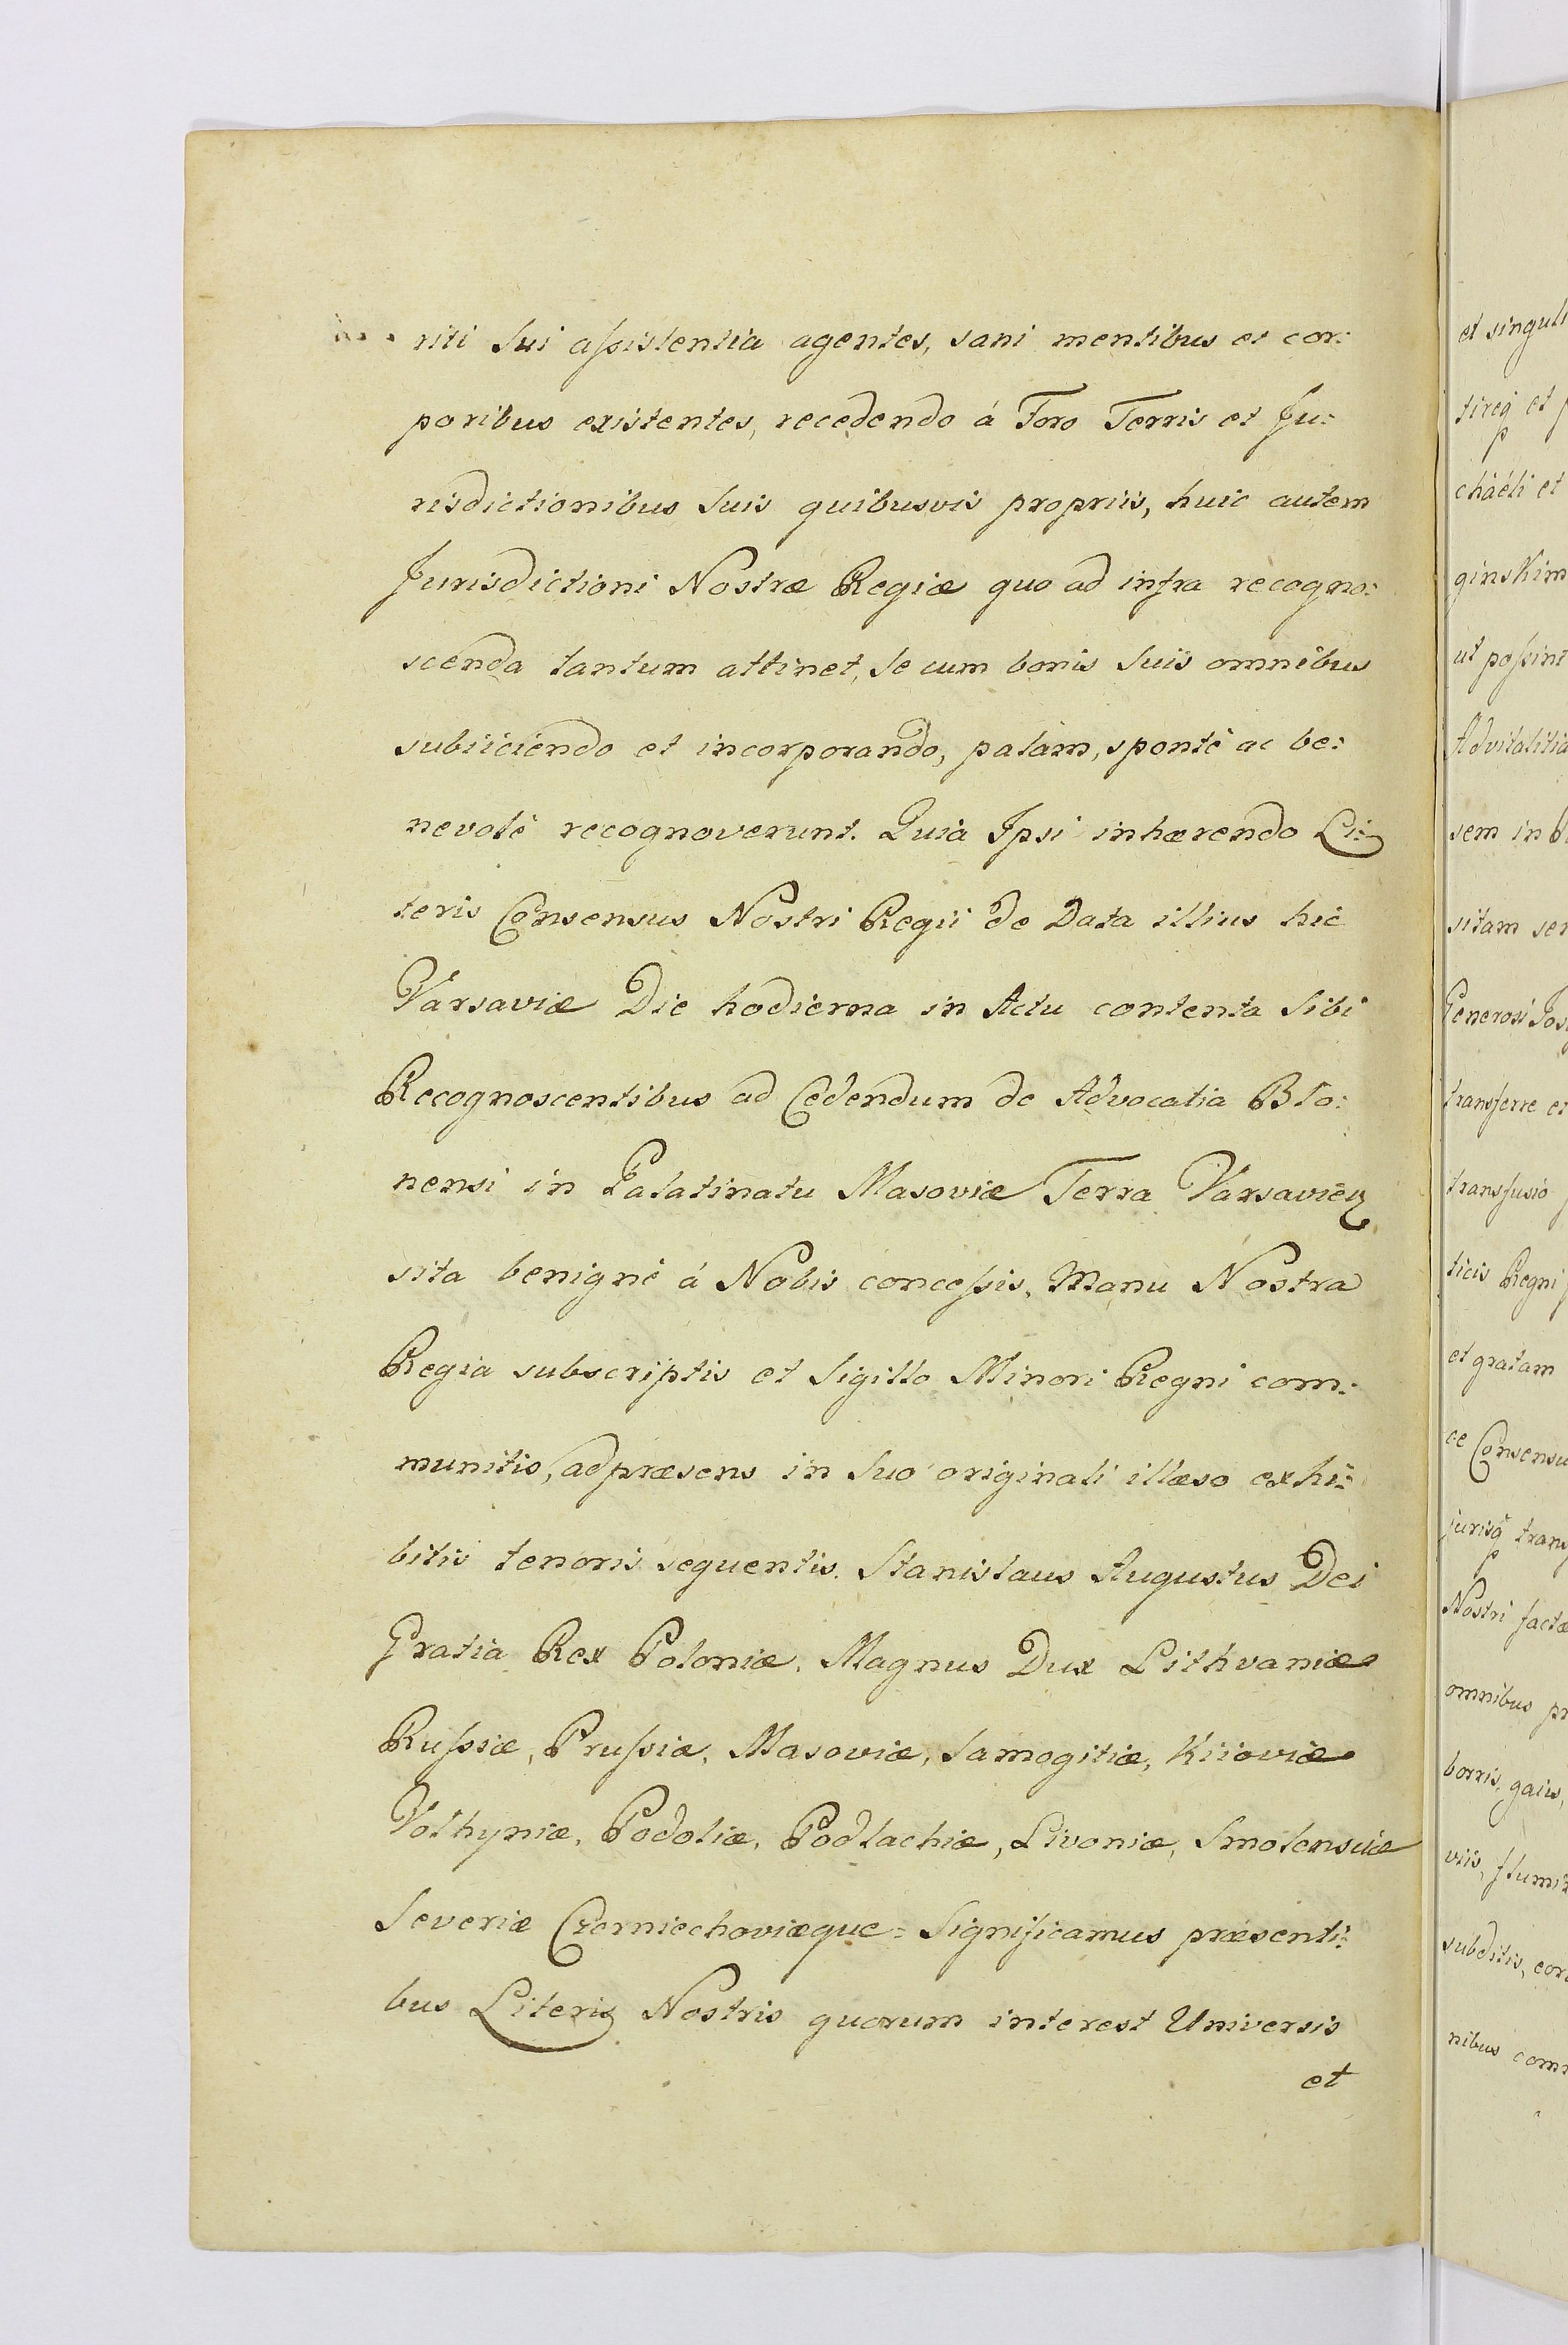 riti Sui assistentia agentes, sani mentibus et cor:
poribus existentes, recedendo à Foro Terris et Ju:
risdictionibus Suis quibusvis propriis, huic autem
Jurisdictioni Nostræ Regiæ quo ad infra recogno:
scenda tantum attinet, Se cum bonis Suis omnibus
subiiciendo et incorporando, palàm, spontè ac be:
nevolè recognoverunt. Quia Ipsi inhærendo Li:
teris Consensus Nostri Regii de Data illius hic
Varsaviæ Die hodierna in Actu contenta Sibi
Recognoscentibus ad Cedendum de Advocatia Blo:
nensi in Palatinatu Masoviæ Terra Varsavien
sita benignè à Nobis concessis, Manu Nostra
Regia subscriptis et Sigillo Minori Regni com:
munitis, ad præsens in Suo originali illæso exhi:
bitis tenoris sequentis. Stanislaus Augustus Dei
Gratia Rex Poloniæ, Magnus Dux Lithvaniæ
Russiæ, Prussiæ, Masoviæ, Samogitiæ, Kiioviæ
Volhyniæ, Podoliæ, Podlachiæ, Livoniæ, Smolensciæ
Severiæ Czerniechoviæque = Significamus præsenti:
bus Literis Nostris quorum interest Universis
et
et singuli
tireq et
chaeli et
ginskim
ut possint
Advitalitia
sem in
sitam ser
Generosi Jos
transferre et
transfusio
ticis Regni
et gratam
ce Consensu
jurisq trans
Nostri factæ
omnibus pr
borris, gaiis,
viis, flumi
subditis, cor
nibus com